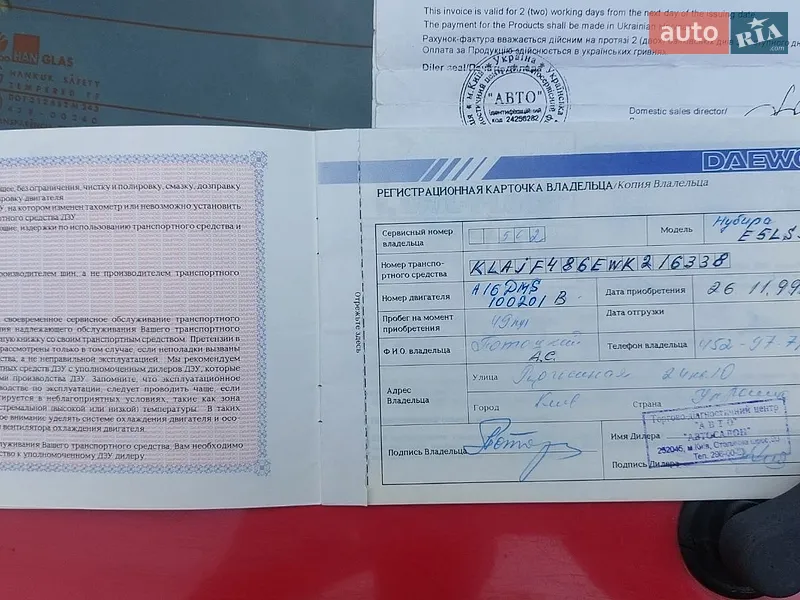 This invoice is valid for 2 (two) working days from the next day of the issuing date
The payment for the Products shall be made in Ukrainian
Рахунок-фактура вважається дійсним на протязі 2 (двох)
Оплата за Продукцію здійснюється в українських гривнях
Diler seal/
Domestic sales director/
auto RIA
.com
"АВТО"
ідентифікаційний
код 24256282
м.Київ Україна
HAN GLAS
HANKUK SAFETY
TEMPERED
DAEWOO
РЕГИСТРАЦИОННАЯ КАРТОЧКА ВЛАДЕЛЬЦА/Копия Владельца
Сервисный номер владельца
562
Модель
Нубира
E5LS
Номер транспортного средства
KLAJF486EWK216338
Номер двигателя
A16DMS
100201 B
Дата приобретения
26 11.99
Пробег на момент приобретения
Дата отгрузки
Ф И.О. владельца
А.С.
Телефон владельца
452-97-7
Адрес Владельца
Улица
Город
Киев
Страна
Украина
Подпись Владельца
Имя Дилера
Подпись Дилера
Торгово-діагностичний центр
"АВТО"
"АВТОСАЛОН"
отрежьте здесь
щее, без ограничения, чистку и полировку, смазку, дозаправку
ровку двигателя
У, на котором изменен тахометр или невозможно установить
ртного средства ДЭУ
ющие, издержки по использованию транспортного средства и
роизводителем шин, а не производителем транспортного
своевременное сервисное обслуживание транспортного
ния надлежащего обслуживания Вашего транспортного
ную книжку со своим транспортным средством. Претензии в
рассмотрены только в том случае, если неполадки вызваны
ства, а не неправильной эксплуатацией. Мы рекомендуем
тных средств ДЭУ с уполномоченным дилеров ДЭУ, которые
ми производства ДЭУ. Запомните, что эксплуатационное
оводстве по эксплуатации, следует проводить чаще, если
тируется в неблагоприятных условиях, таких как зона
стремальной (высокой или низкой) температуры. В таких
ное внимание уделять системе охлаждения двигателя и осо
вентилятора охлаждения двигателя
луживания Вашего транспортного средства, Вам необходимо
ство к уполномоченному ДЭУ дилеру.